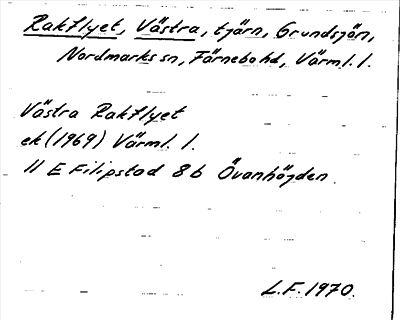 Rakflyet, Västra, tjärn, Grundsjön,
Nordmarks sn, Färnebo hd, Värml. l.
Västra Rakflyet
ek (1969) Värml. l.
11 E Filipstad 8 b Övanhöjden.
L.F. 1970.